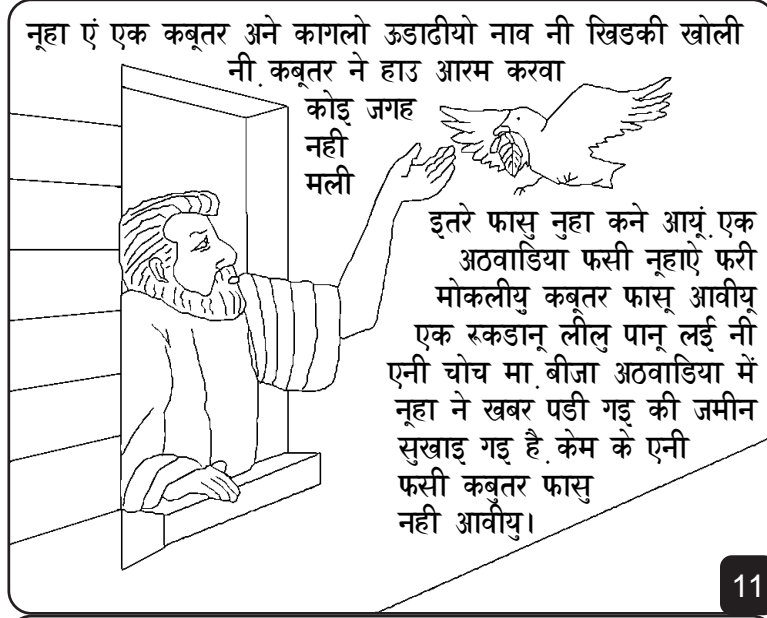 नूहा एं एक कबूतर अने कागलो ऊडाढीयो नाव नी खिडकी खोली
नी. कबूतर ने हाउ आरम करवा
कोइ जगह
नही
मली
इतरे फासु नुहा कने आयूं. एक
अठवाडिया फसी नूहाऐ फरी
मोकलीयु कबूतर फासू आवीयू
एक रूकडानू लीलु पानू लई नी
एनी चोच मा. बीजा अठवाडिया में
नूहा ने खबर पडी गइ की जमीन
सुखाइ गइ है. केम के एनी
फसी कबुतर फासु
नही आवीयु।
11